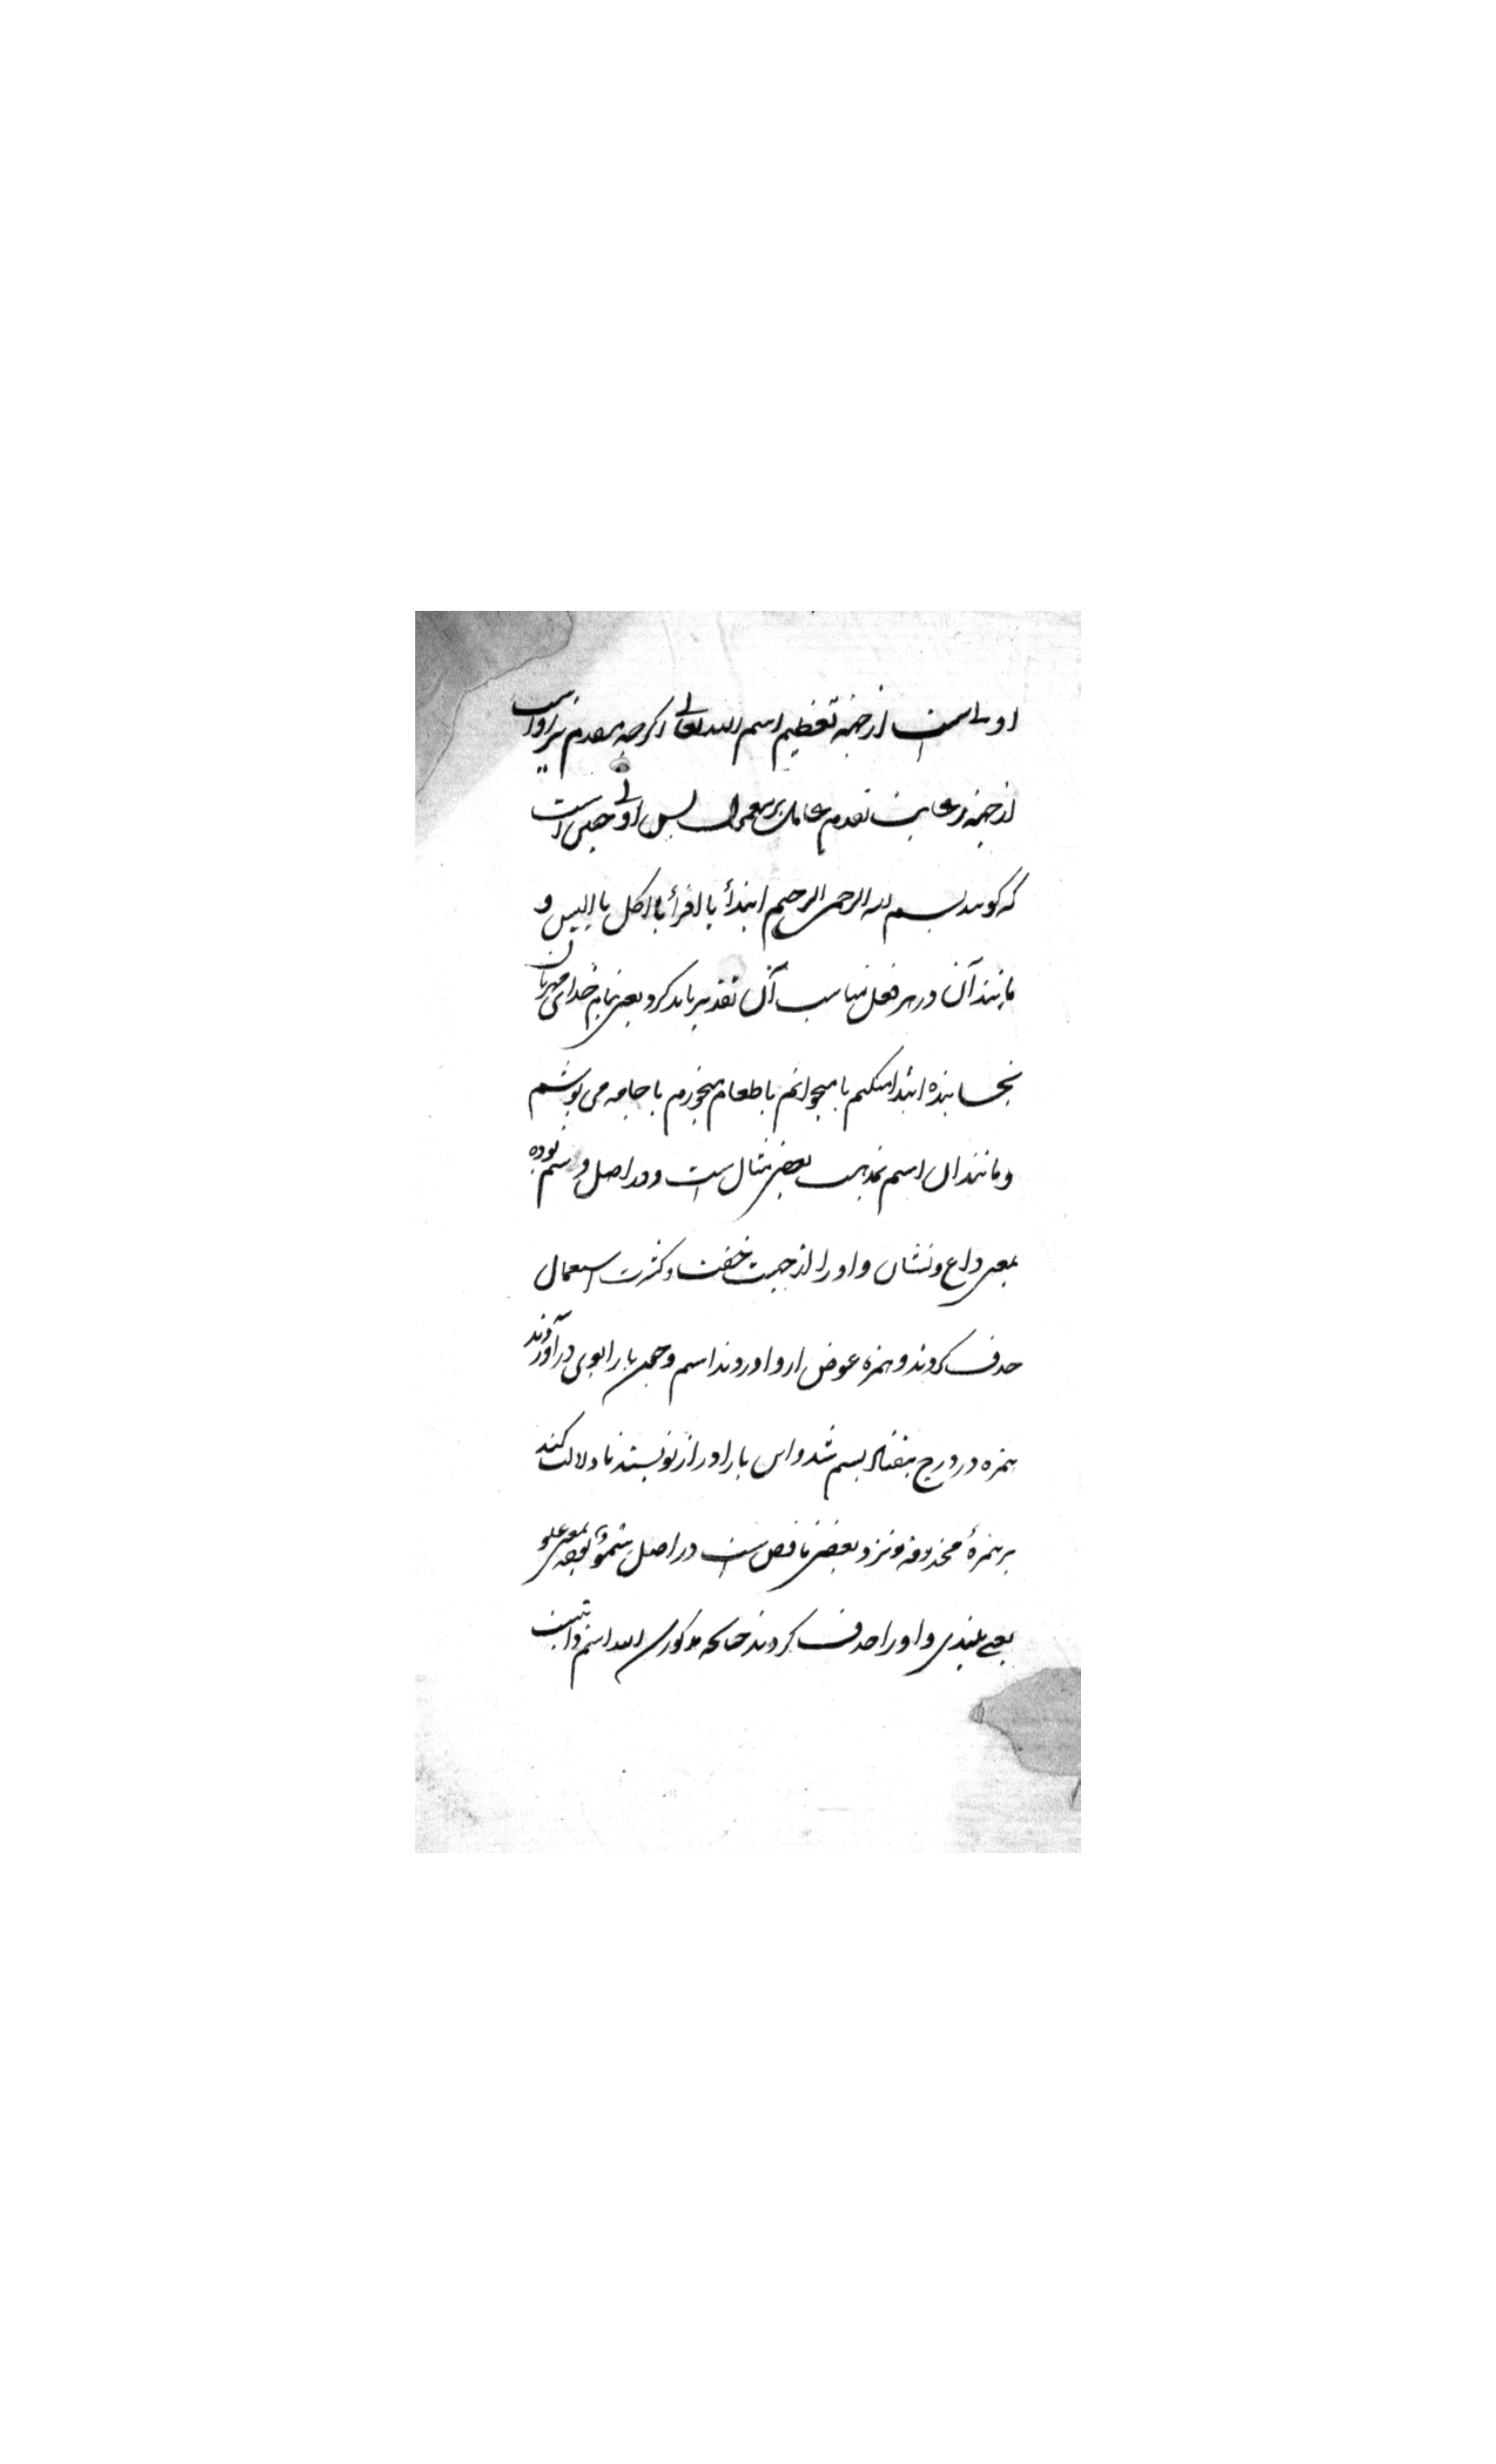 اولی است از جهة تعظیم اسم الله تعالی اکرچه مقدم نیز رواست
از جهة رعایت تقدیم عامل بر معمول پس اولی چنین است
که کویند بسم الله الرحمن الرحیم ابتدأ یا اقرأ یا اکل یا البس و
مانند آن در هر فعل مناسب آن تقدیر باید کرد یعنی بنام خدای مهربان
بخشاینده ابتدا میکنم یا میخوانم یا طعام میخورم یا جامه می پوشم
و مانند ان اسم بمذهب بعضی مثال است و در اصل وسم بوده
بمعنی داغ و نشان واو را از جهت خفت و کثرت استعمال
حذف کردند و همزه عوض از واو آوردند اسم و چون با را بوی در آوردند
همزه در درج بیفتاد بسم شد و این با را دراز نویسند تا دلالت کند
بر همزهٔ محذوفه و نزد بعضی ناقص است در اصل سمو بوده بمعنی علو
یعنی بلندی واو را حذف کردند چنانکه مذکور الله اسم ذاتست